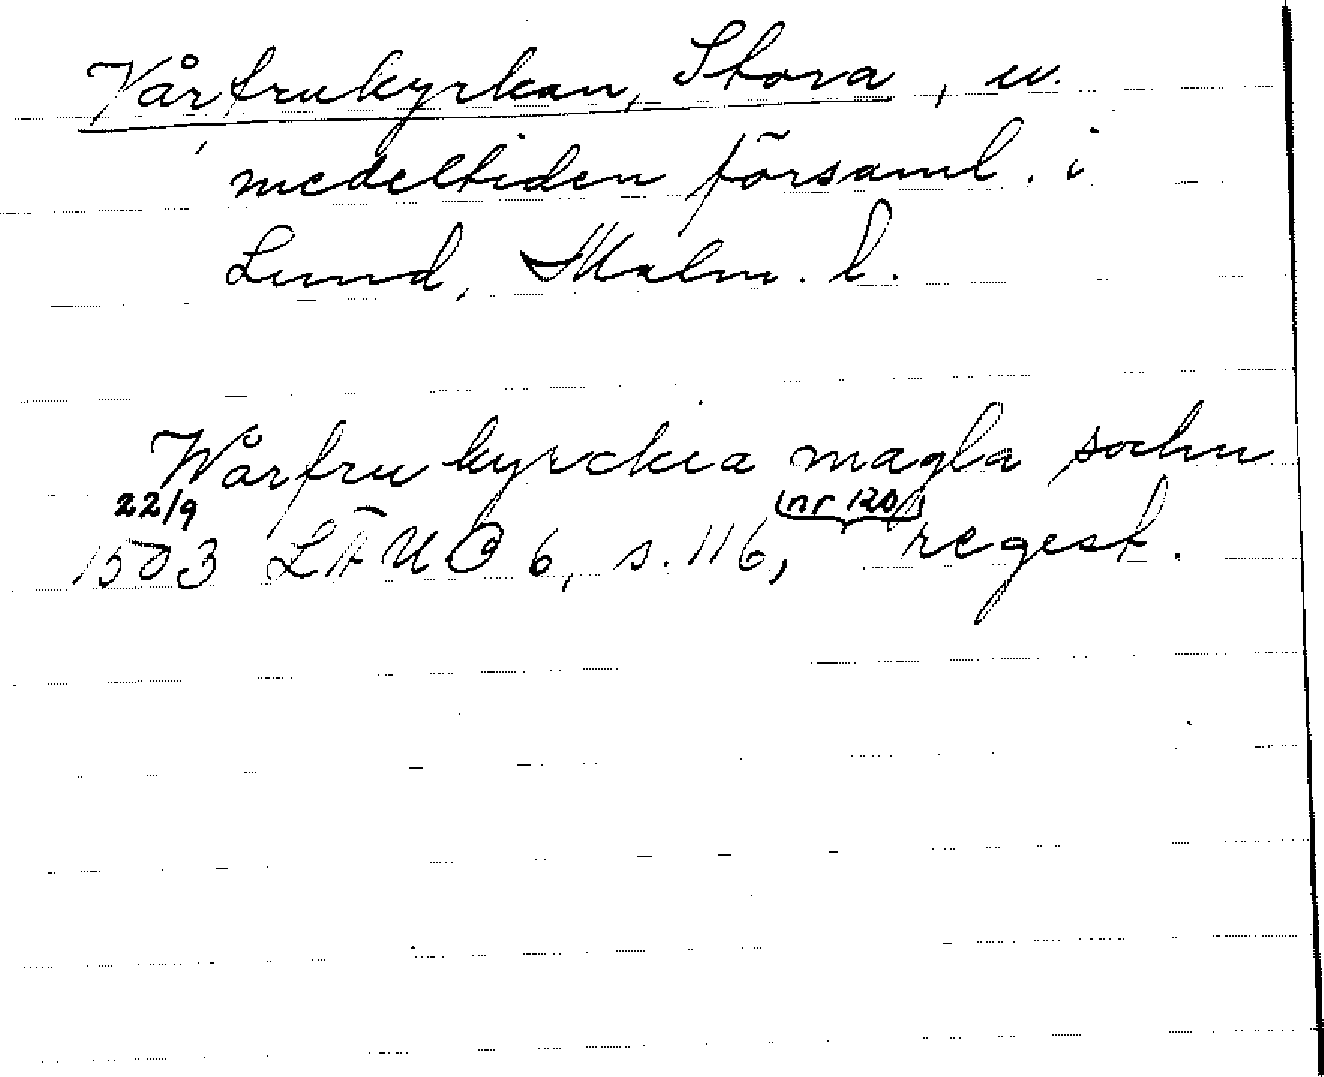 Vårfrukyrkan, Stora, u.
medeltiden församl. i
Lund, Malm. l.
Wårfru kyrckia magla sochn
22/9 (nr 120)
1503 LÄUB 6, s. 116, regest.